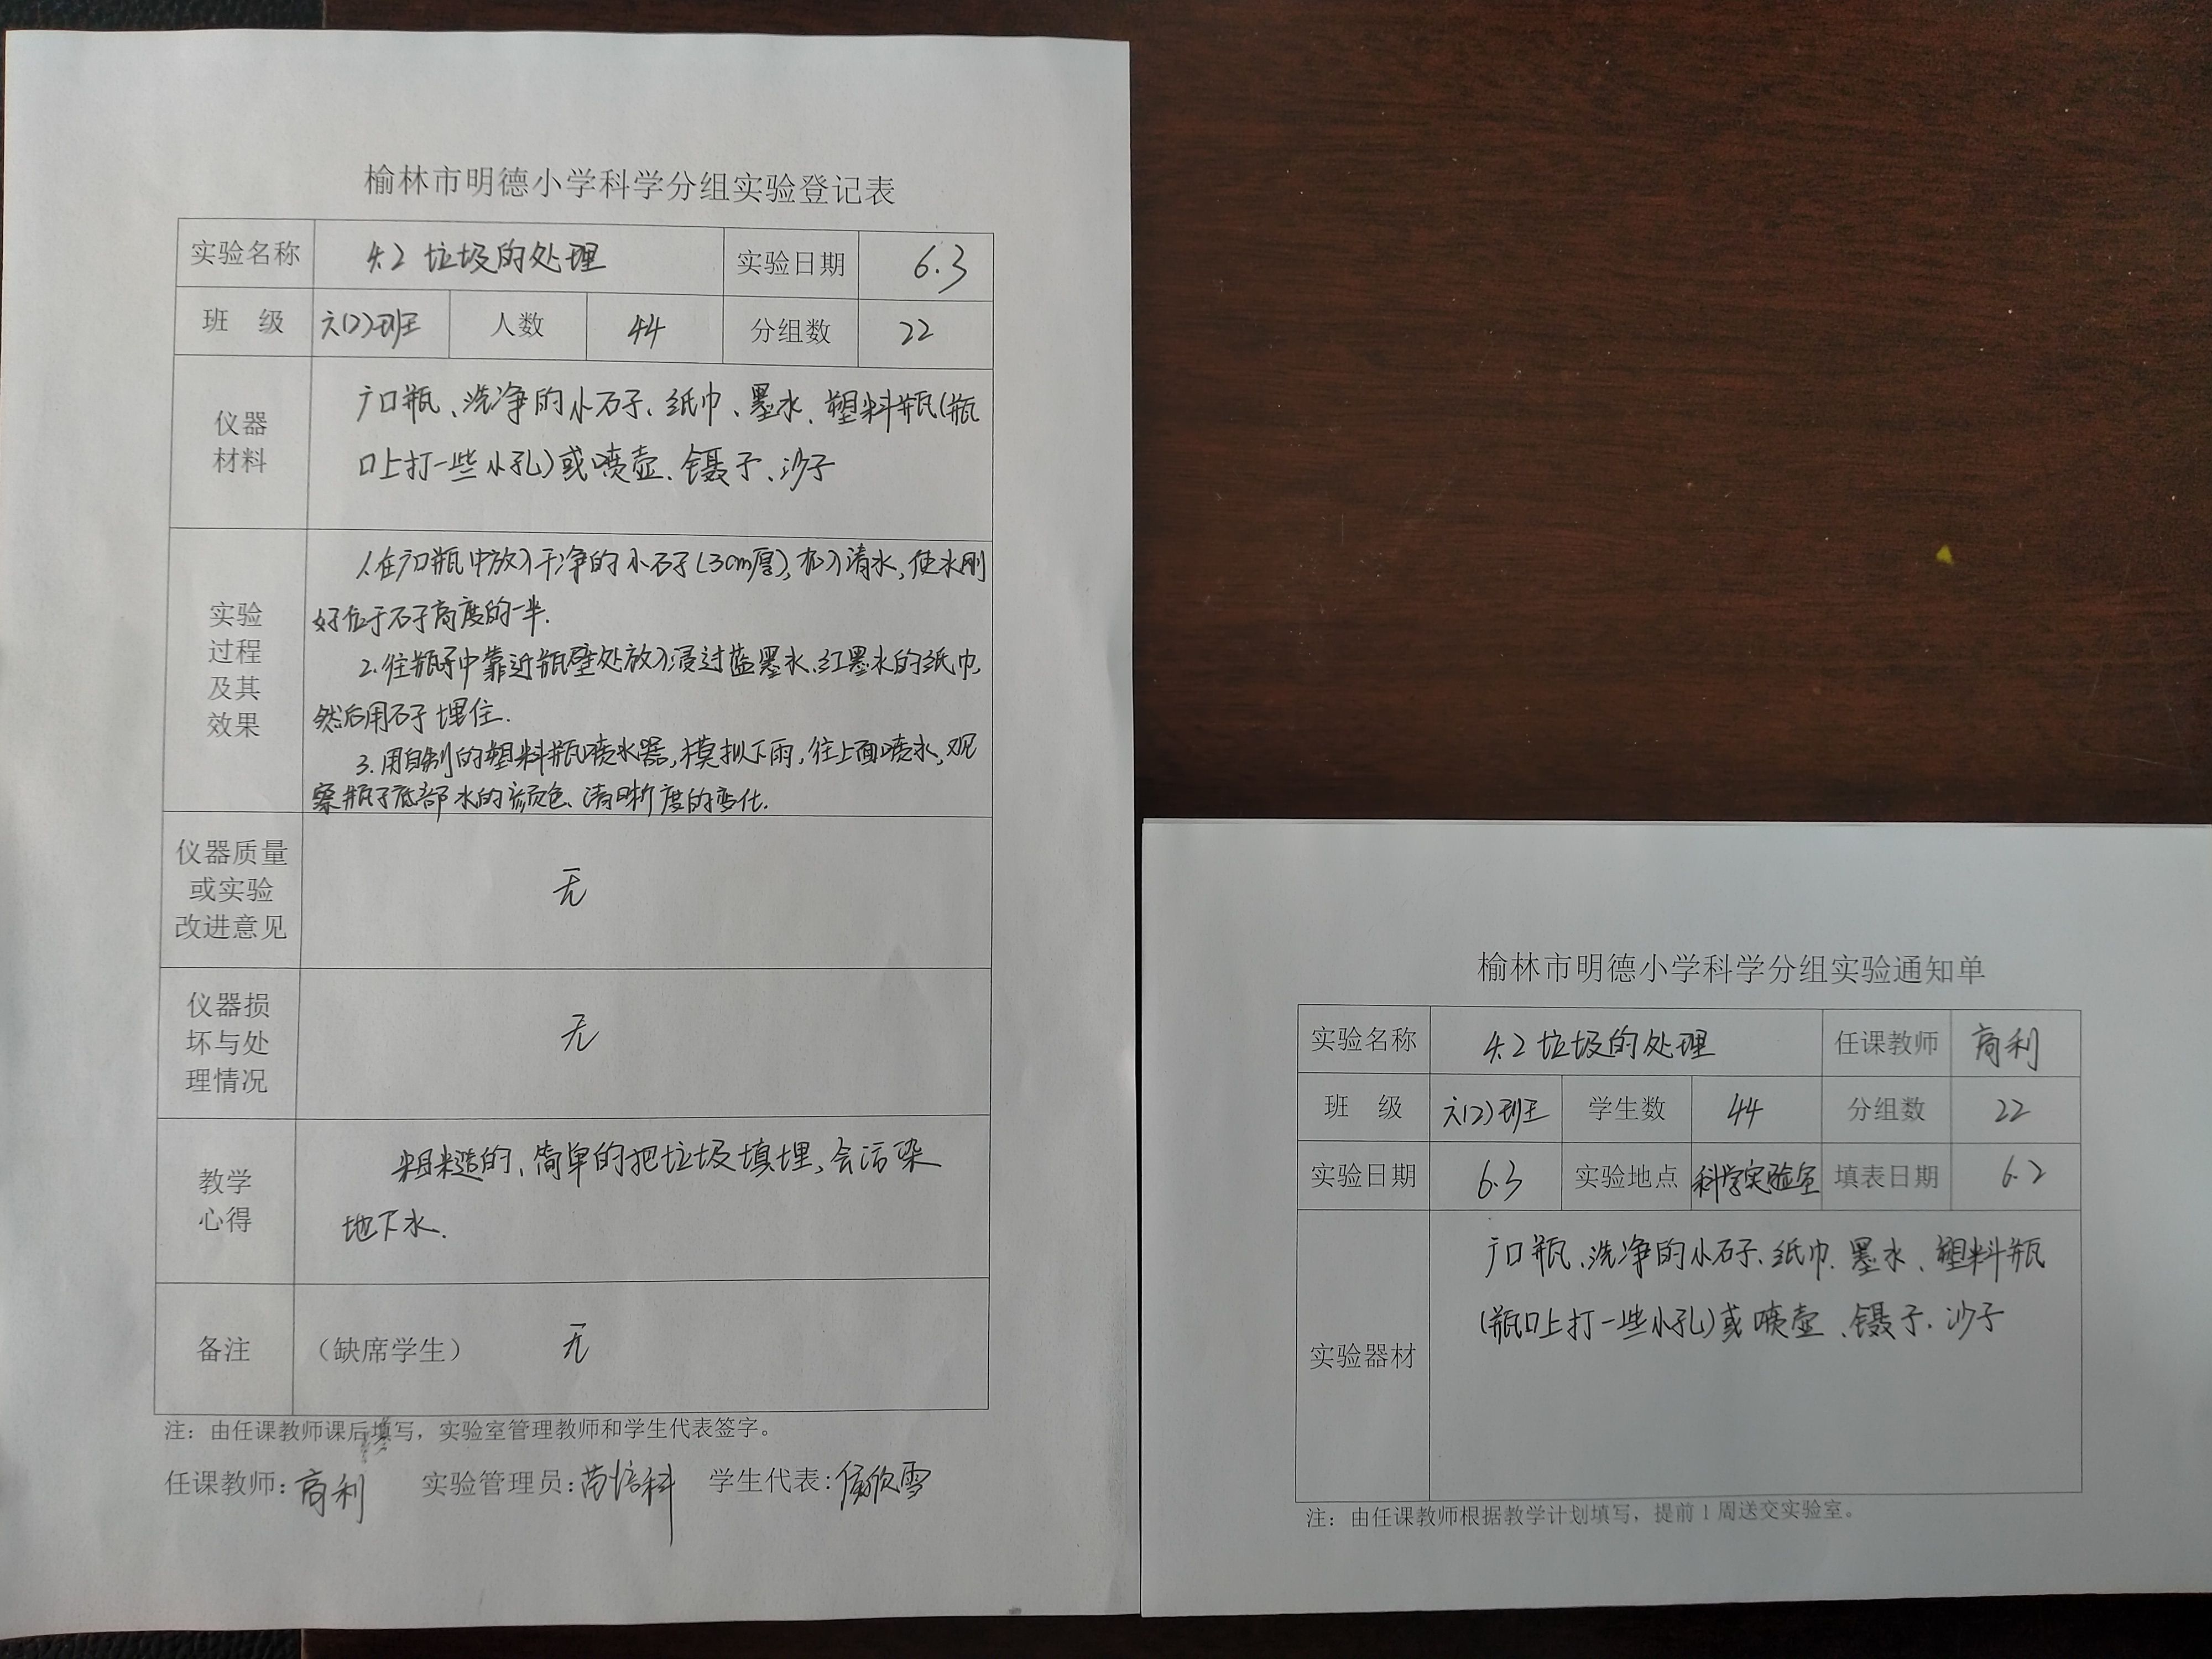 榆林市明德小学科学分组实验登记表
实验名称 4.2 垃圾的处理 实验日期 6.3
班 级 六(2)班 人数 44 分组数 22
仪器
材料
广口瓶、洗净的小石子、纸巾、墨水、塑料瓶(瓶
口上打一些小孔)或喷壶、镊子、沙子
实验
过程
及其
效果
1.在广口瓶中放入干净的小石子(3cm厚),加入清水,使水刚
好位于石子高度的一半.
2.往瓶子中靠近瓶壁处放入浸过蓝墨水、红墨水的纸巾,
然后用石子埋住.
3.用自制的塑料瓶喷水器,模拟下雨,往上面喷水,观
察瓶子底部水的颜色、清晰度的变化.
仪器质量
或实验
改进意见
无
仪器损
坏与处
理情况
无
教学
心得
粗糙的、简单的把垃圾填埋,会污染
地下水.
备注 （缺席学生） 无
注：由任课教师课后填写，实验室管理教师和学生代表签字。
任课教师: 高利 实验管理员: 苗培科 学生代表: 侯欣雪
榆林市明德小学科学分组实验通知单
实验名称 4.2 垃圾的处理 任课教师 高利
班 级 六(2)班 学生数 44 分组数 22
实验日期 6.3 实验地点 科学实验室 填表日期 6.2
实验器材
广口瓶、洗净的小石子、纸巾、墨水、塑料瓶
(瓶口上打一些小孔)或喷壶、镊子、沙子
注：由任课教师根据教学计划填写，提前1周送交实验室。